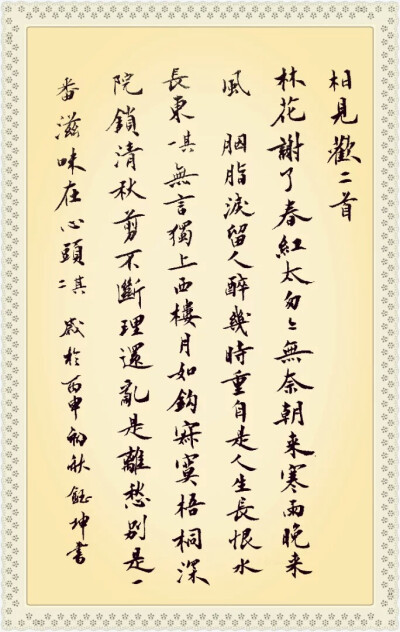 相見歡二首
林花謝了春紅太匆々無奈朝来寒雨晚来
風 胭脂淚留人醉幾時重自是人生長恨水
長東 其一 無言獨上西樓月如鈎寂寞梧桐深
院鎖清秋剪不斷理還亂是離愁別是一
番滋味在心頭 其二 歲於丙申初秋鈺坤書